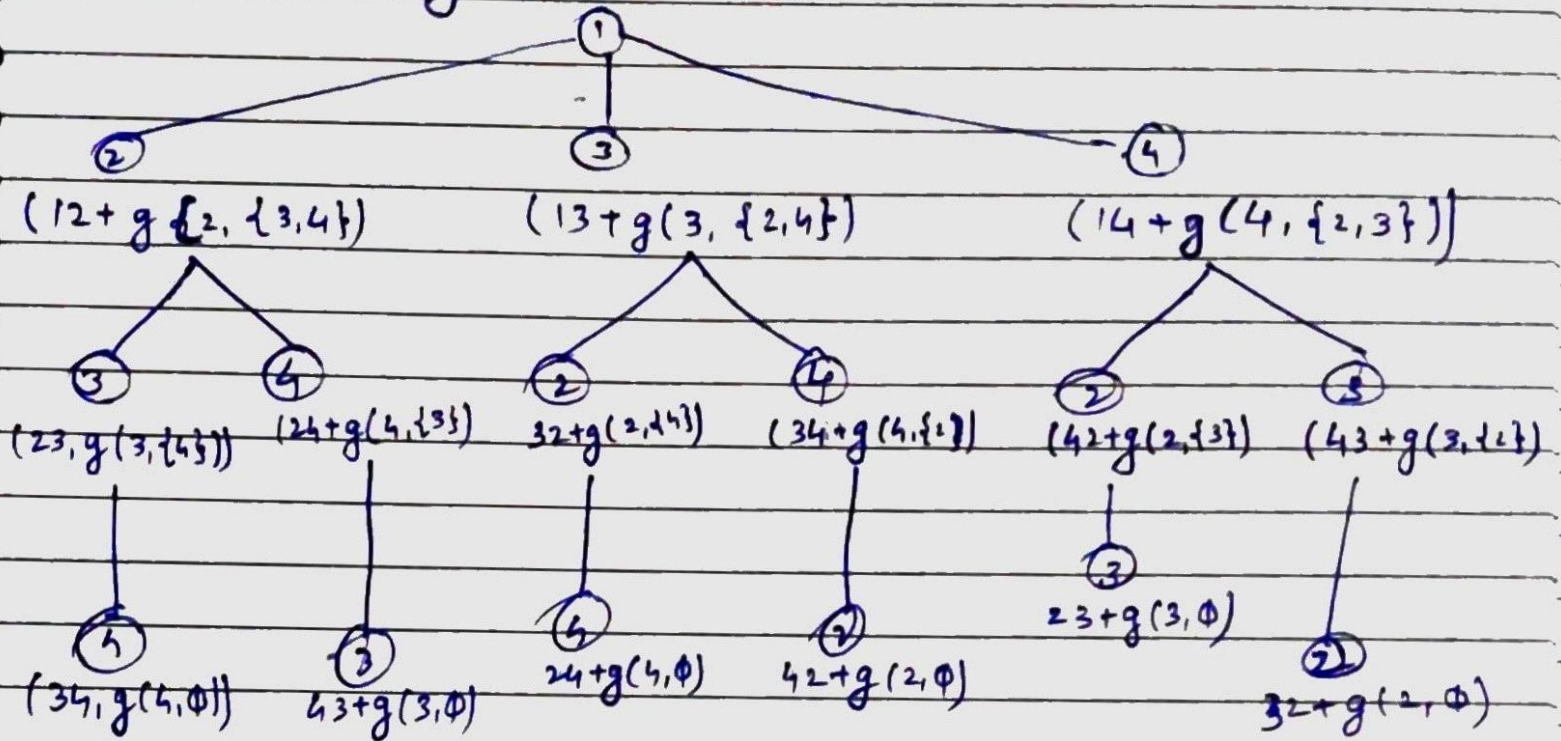 1
2 3 4
(12+ g {2, {3,4}) (13+g(3, {2,4}) (14+g(4,{2,3}))
3 4 2 4 2 3
(23,g(3,{4})) (24+g(4,{3}) 32+g(2,{4}) (34+g(4,{2}) (42+g(2,{3}) (43+g(3,{2})
3
23+g(3,φ)
4 3 4 2 2
(34,g(4,φ)) 43+g(3,φ) 24+g(4,φ) 42+g(2,φ) 32+g(2,φ)